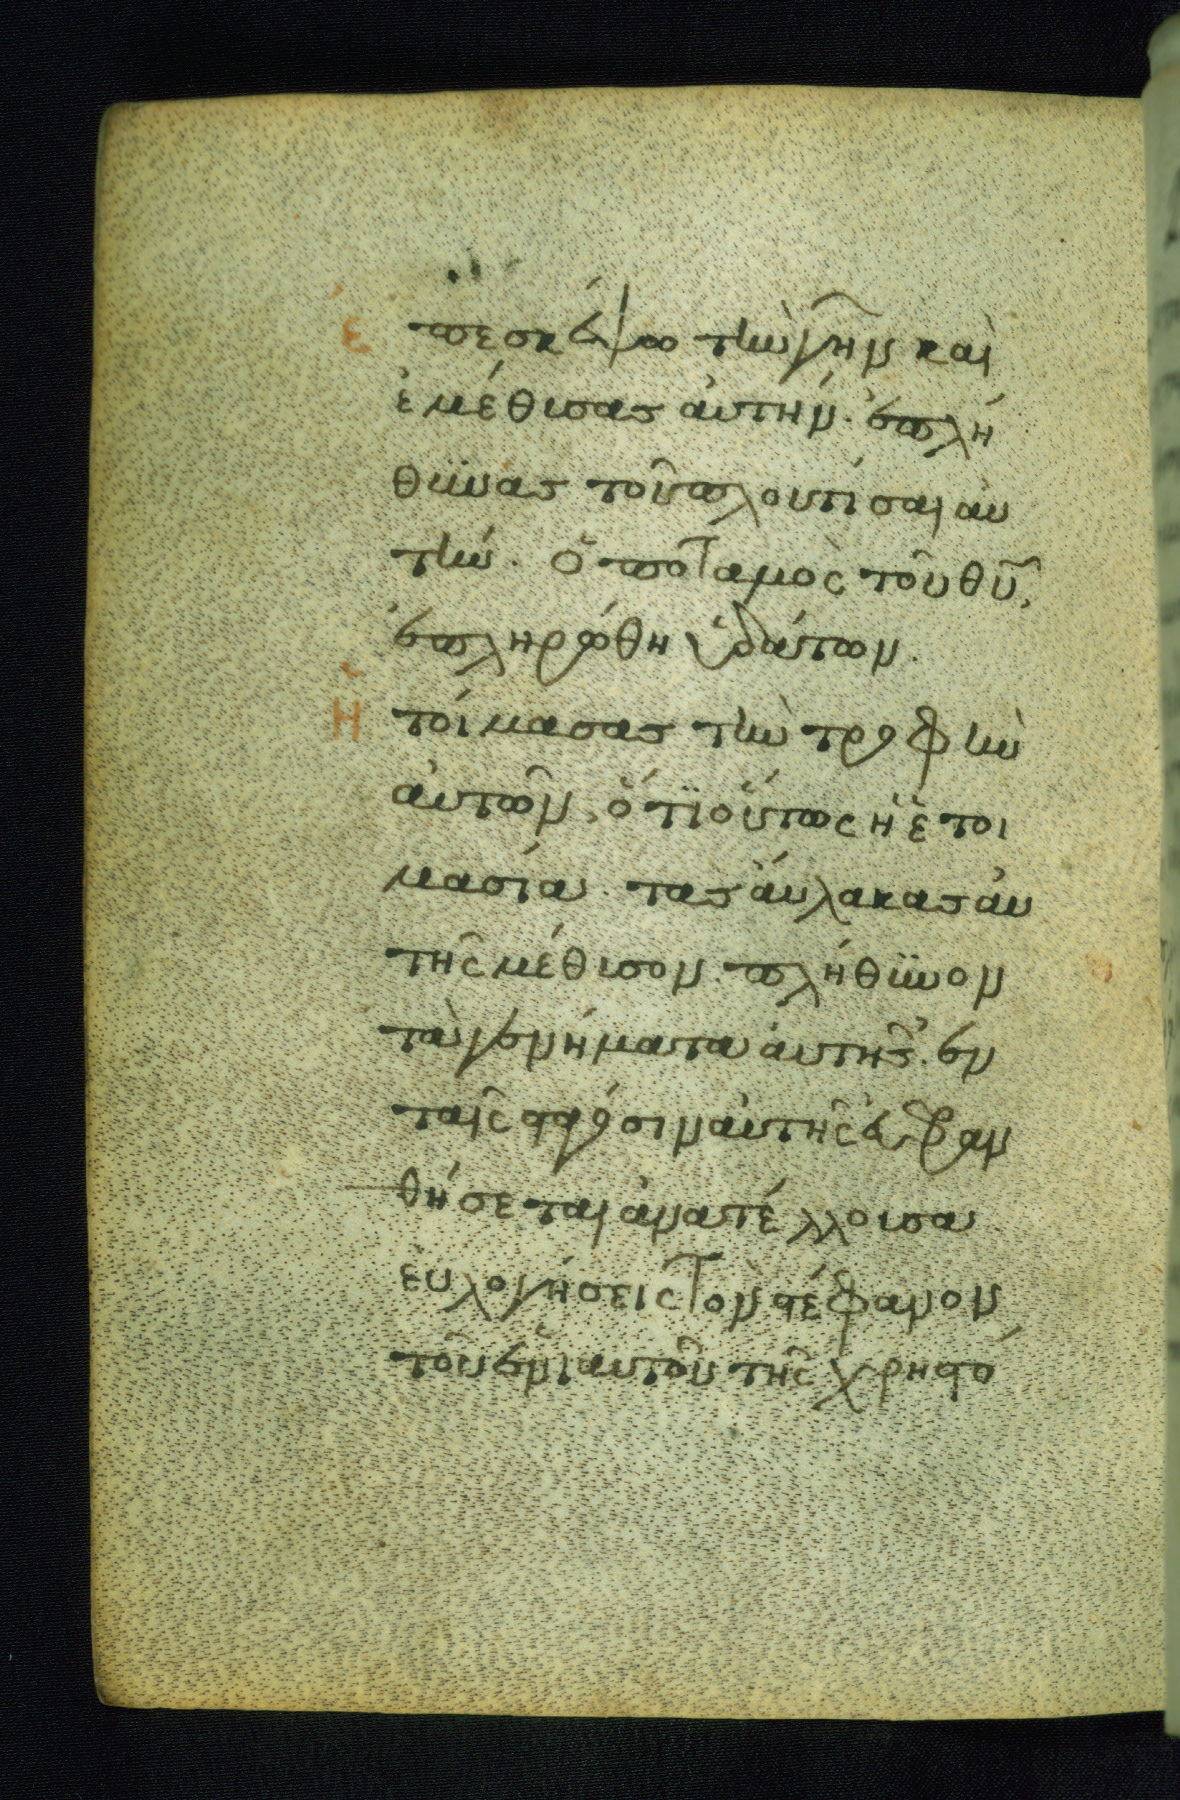 ἐπεσκέψω τὴν γῆν καὶ
ἐμέθυσας ἀυτήν. ἐπλή
θυνας τοῦ πλουτίσαι ἀυ
τήν. Ὁ ποταμὸς τοῦ θῦ,
ἐπληρώθη ὑδάτων.
Ἡτοίμασας τὴν τροφὴν
ἀυτῶν, ὅτι οὕτως ἡ ἑτοι
μασία. τας ἄυλακας ἀυ
τῆς μέθυσον. πλήθυνον
τὰ γεννήματα ἀυτῆς. ἐν
ταῖς σταγόσιν ἀυτῆς ἐυφραν
θήσεται ἀνατέλλουσα
ἐυλογήσεις τὸν στέφανον
τοῦ ἐνιαυτοῦ τῆς χρηστό